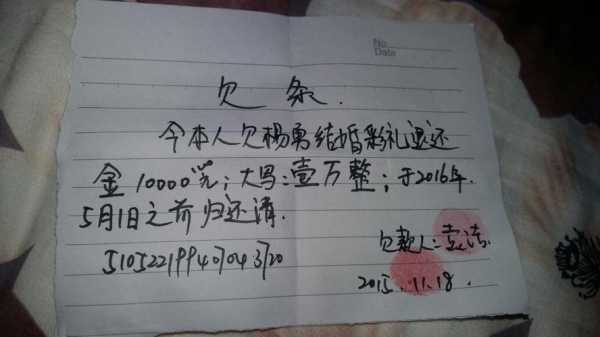 No.
Date
欠条.
今本人欠杨勇结婚彩礼退还
金10000元;大写:壹万整;于2016年.
5月1日之前归还清.
欠款人:袁洁.
510522199407043720
2015.11.18.